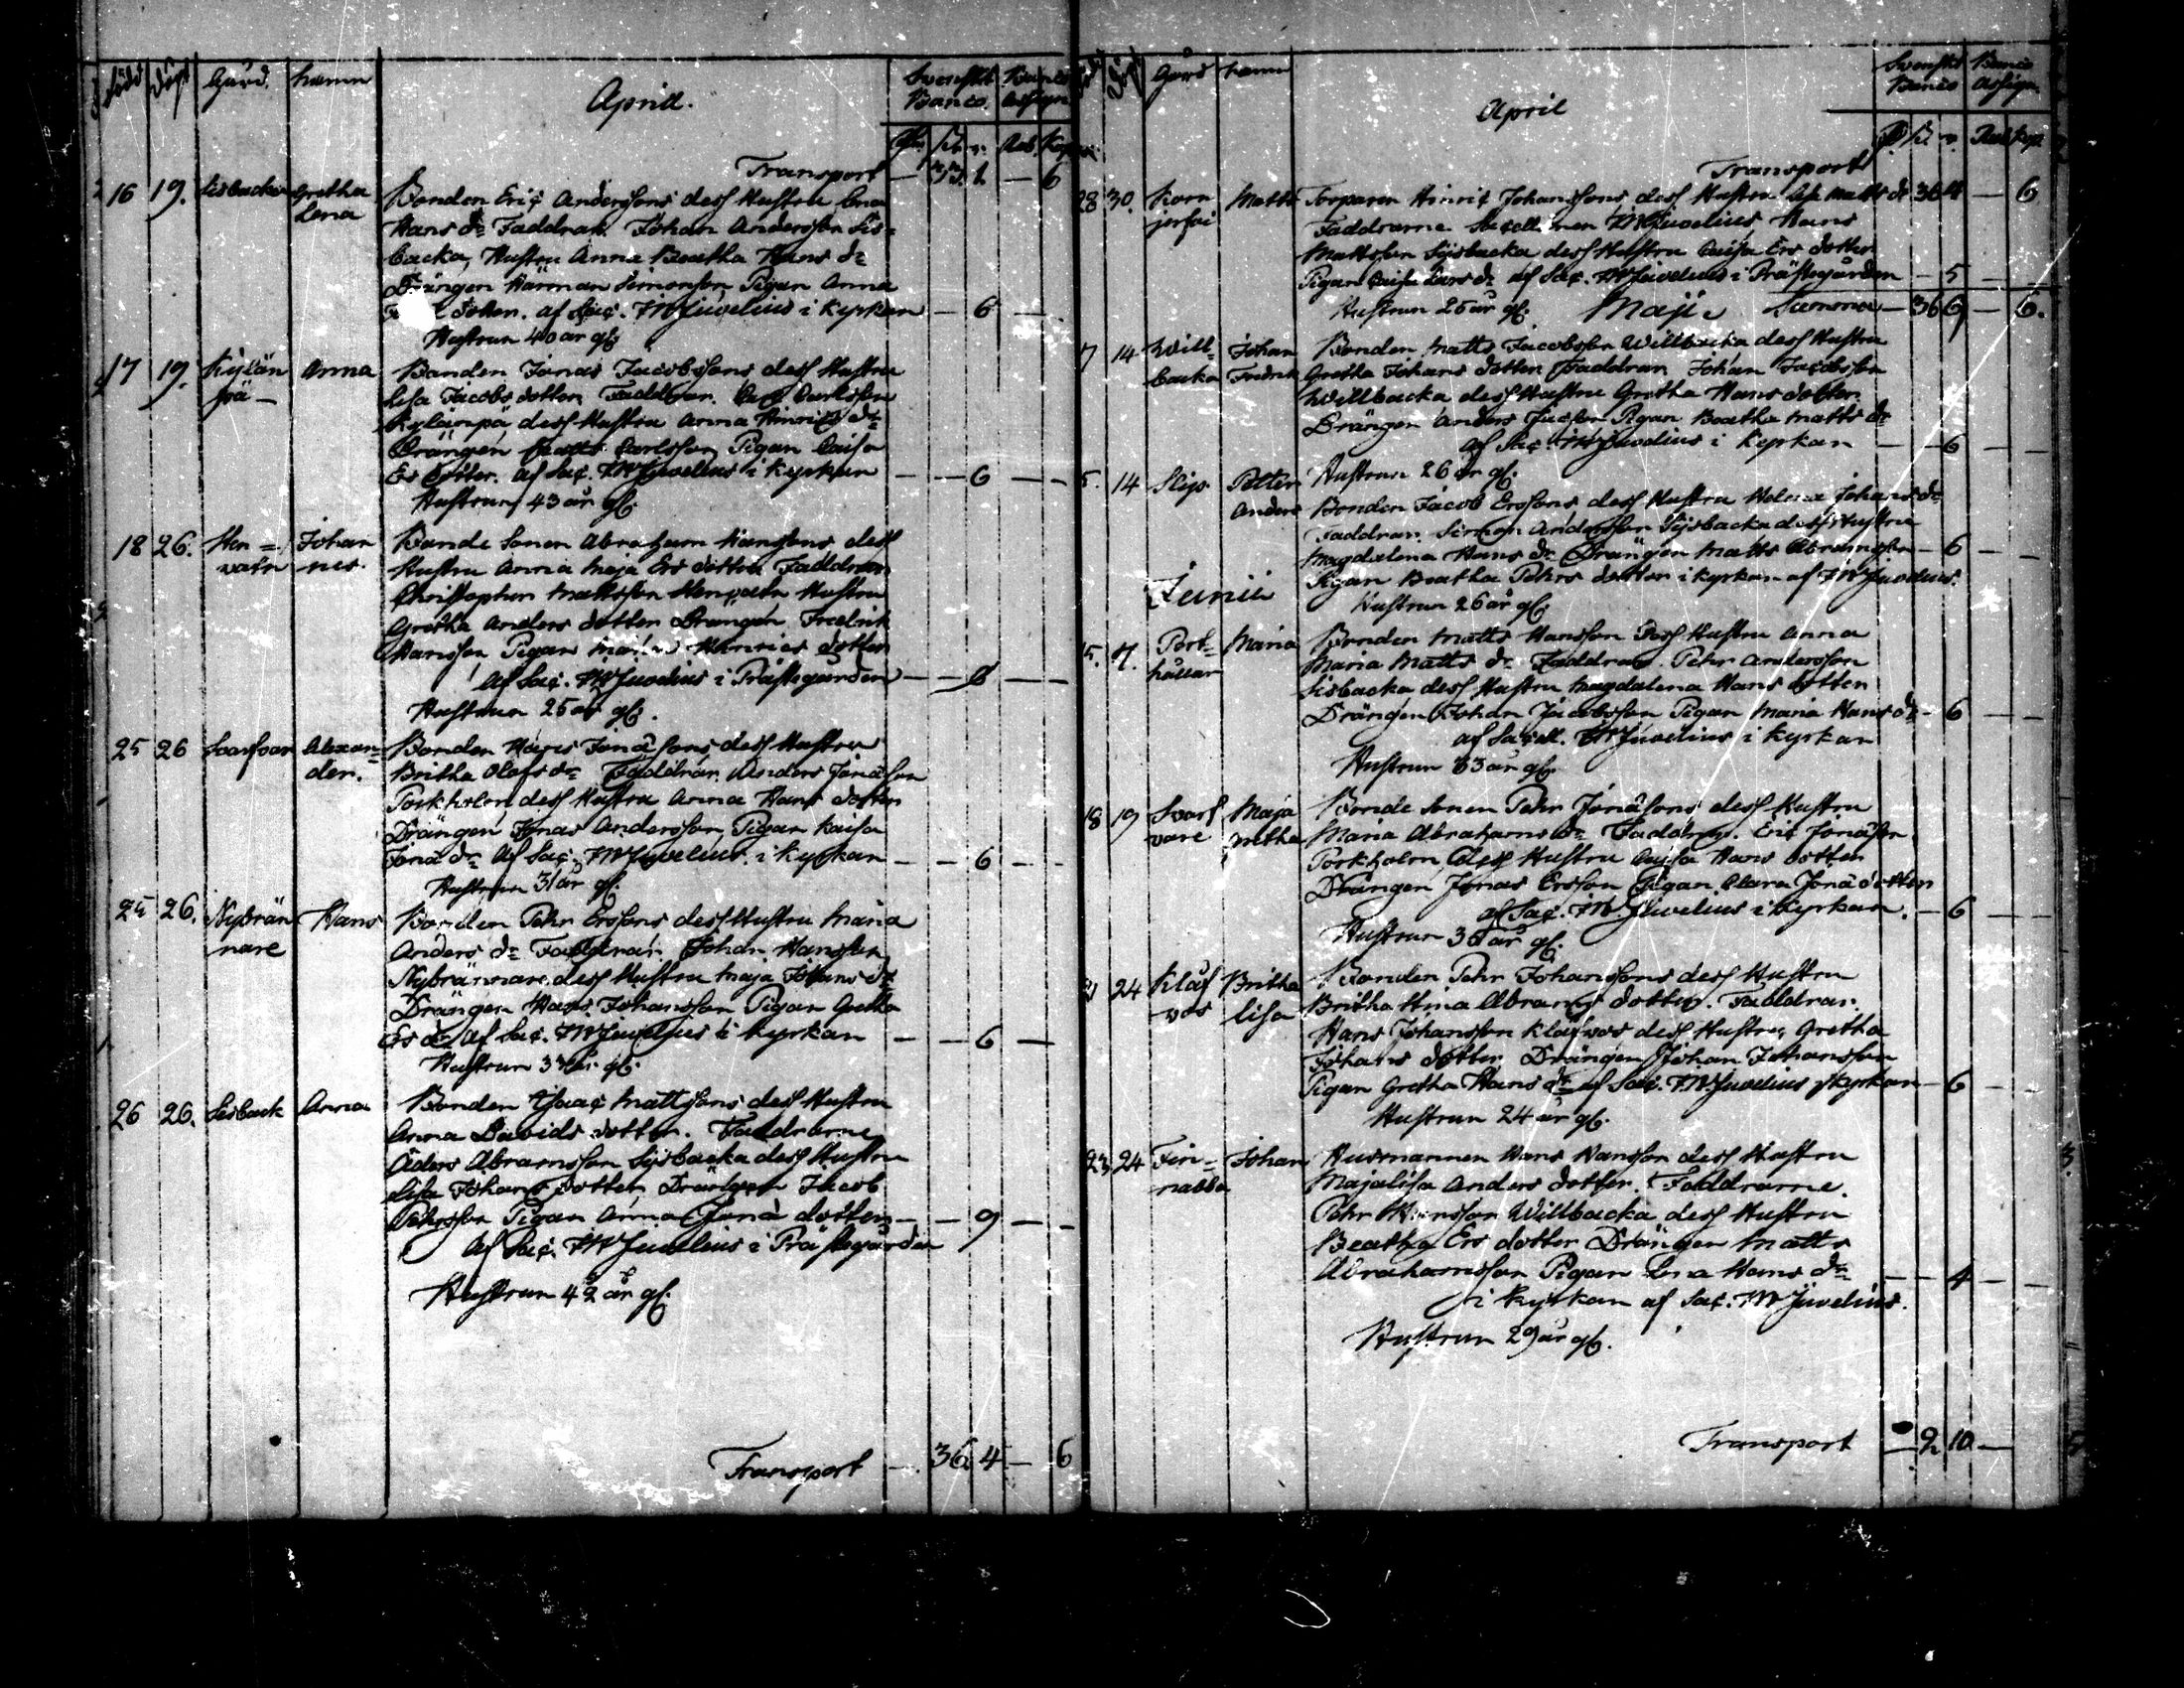 född döpt Gård. namn Aprill. Svenskt Banco. Banco Assign.
Rub. Kop.
Transport — 33. 1 — 6
16 19. Sisbacka Gretha Lena Bonden Eric Anderssons dess Hustru Lena
Hans dr Faddrar. Johan Andersson Sis=
backa, Hustru Anna Beatha Hans dr
Drängen Härman Simonsson Pigan Anna
dotter. af Sac. FM Juvelius i kyrkan — 6 —
Hustrun 40 år gl.
17 19. Kylän pä — Anna Bonden Jonas Jacobssons dess Hustru
Lisa Jacobs dotter Faddrar. Carl Carlsson
Kylänpä dess Hustru Anna Hinrics dr
Drängen Matts Carlsson Pigan Caisa
Ers dotter. af Sac. FM Juvelius i kyrkan — — 6 — —
Hustrun 43 år gl.
18 26. Hen= vatn Johan nes. Bonde Sonen Abraham Hanssons dess
Hustru Anna Maja Ers dotter Faddrar
Christopher Mattsson Henvatn Hustru
Gretha Anders dotter Drängen Fredrik
Hansson Pigan Maria Hinrics dotter
af Sac. FM Juvelius i Prästegården — — 6 — —
Hustrun 25 år gl.
25 26 Alexan= der. Bonden Hans Jonässons dess Hustru
Britha Olofs dr Faddrar Anders Jonässon
Porkholm dess Hustru Anna Hans dotter
Drängen Jonas Andersson Pigan Kaisa
Jonä dr af Sac. FM Juvelius. i kyrkan — — 6 — —
Hustrun 31 år gl.
25 26. Nybrän nare Hans Bonden Pehr Erssons dess Hustru Maria
Anders dr Faddrar. Johan Hansson
Nybrännare dess Hustru Maja Johans dr
Drängen Hans Johansson Pigan Gretha
Ers dr af Sac. FM Juvelius i kyrkan — — 6 —
Hustrun 33 år gl.
26 26. Sisback Anna Bonden Isaac Mattssons dess Hustru
Anna Davids dotter. Faddrarne
Anders Abramsson Sysbacka dess Hustru
Lisa Johans dotter, Drängen Jacob
Pehrsson Pigan Anna Jonä dotter — — 9 — —
af Sac. FM Juvelius i Prästegården
Hustrun 42 år gl.
Transport — 36. 4 — 6
Gård namn April Svenskt Banco Banco Assign.
Rub. Kop.
Transport
28 30. Korn jerfvi Matts Torparen Hinric Johanssons dess Hustru Matts dr 36 4 — 6
Faddrarne Sacell. FM Juvelius, Hans
Mattsson Sysbacka dess Hustru Caisa Ers dotter
Pigan Caisa Lars dr af Sac. FM Juvelius i Prästegården — 5 —
Hustrun 25 år gl. Maji Summa — 36 9 — 6.
7 14 Will= backa Johan Fredrik Bonden Matts Jacobsson Willbacka dess Hustru
Gretha Johans dotter Faddrar Johan Jacobsson
Willbacka dess Hustru Gretha Hans dotter
Drängen Anders Pigan Beatha Matts dr
af Sac. FM Juvelius i kyrkan — — 6 — —
Hustrun 26 år gl.
5. 14 Petter Anders Bonden Jacob Erssons dess Hustru Helena Johans dr
Faddrar. Simon Andersson Sysbacka dess Hustru
Magdalena Hans dr Drängen Matts Abramsson — 6 — —
Pigan Beatha Pehrs dotter i kyrkan af FM Juvelius.
Junii Hustrun 26 år gl.
5. 7. Pert= hällar Maria Bonden Matts Hansson dess Hustru Anna
Maria Matts dr Faddrar. Pehr Andersson
Sisbacka dess Hustru Magdalena Hans dotter
Drängen Johan Jacobsson Pigan Maria Hans dr — 6 — —
af Sacell. FM Juvelius i kyrkan
Hustrun 33 år gl.
18 19 Svarf vare Maja Gretha Bonde Sonen Pehr Jonässons dess Hustru
Maria Abrahams dr Faddrar. Eric Jonässon
Porkholm dess Hustru Caisa Hans dotter
Drängen Jonas Ersson Pigan Clara Jonä dotter
af Sac. FM. Juvelius i kyrkan. — 6 — —
Hustrun 36 år gl.
21 24 Klåf vos Britha Lisa Bonden Pehr Johanssons dess Hustru
Britha Stina Abrams dotter. Faddrar.
Hans Johansson Klåfvos dess Hustru Gretha
Johans dotter Drängen Johan Johansson
Pigan Gretha Hans dr af Sac. FM Juvelius i kyrkan — 6 — —
Hustrun 24 år gl.
23 24 Fin= nabba Johan Husmannen Hans Hansson dess Hustru
Majalisa Anders dotter. Faddrarne.
Pehr Hansson Willbacka dess Hustru
Beatha Ers dotter Drängen Matts
Abrahamsson Pigan Lena Hans dr — — 4 — —
i kyrkan af Sac. FM Juvelius.
Hustrun 29 år gl.
Transport — 2. 10. —